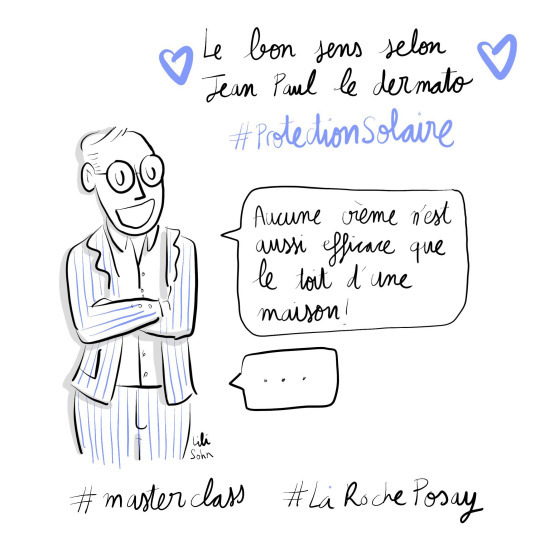 Le bon sens selon
Jean Paul le dermato
#ProtectionSolaire
Aucune crème n'est
aussi efficace que
le toit d'une
maison!
...
Lili
Sohn
#masterclass #La Roche Posay